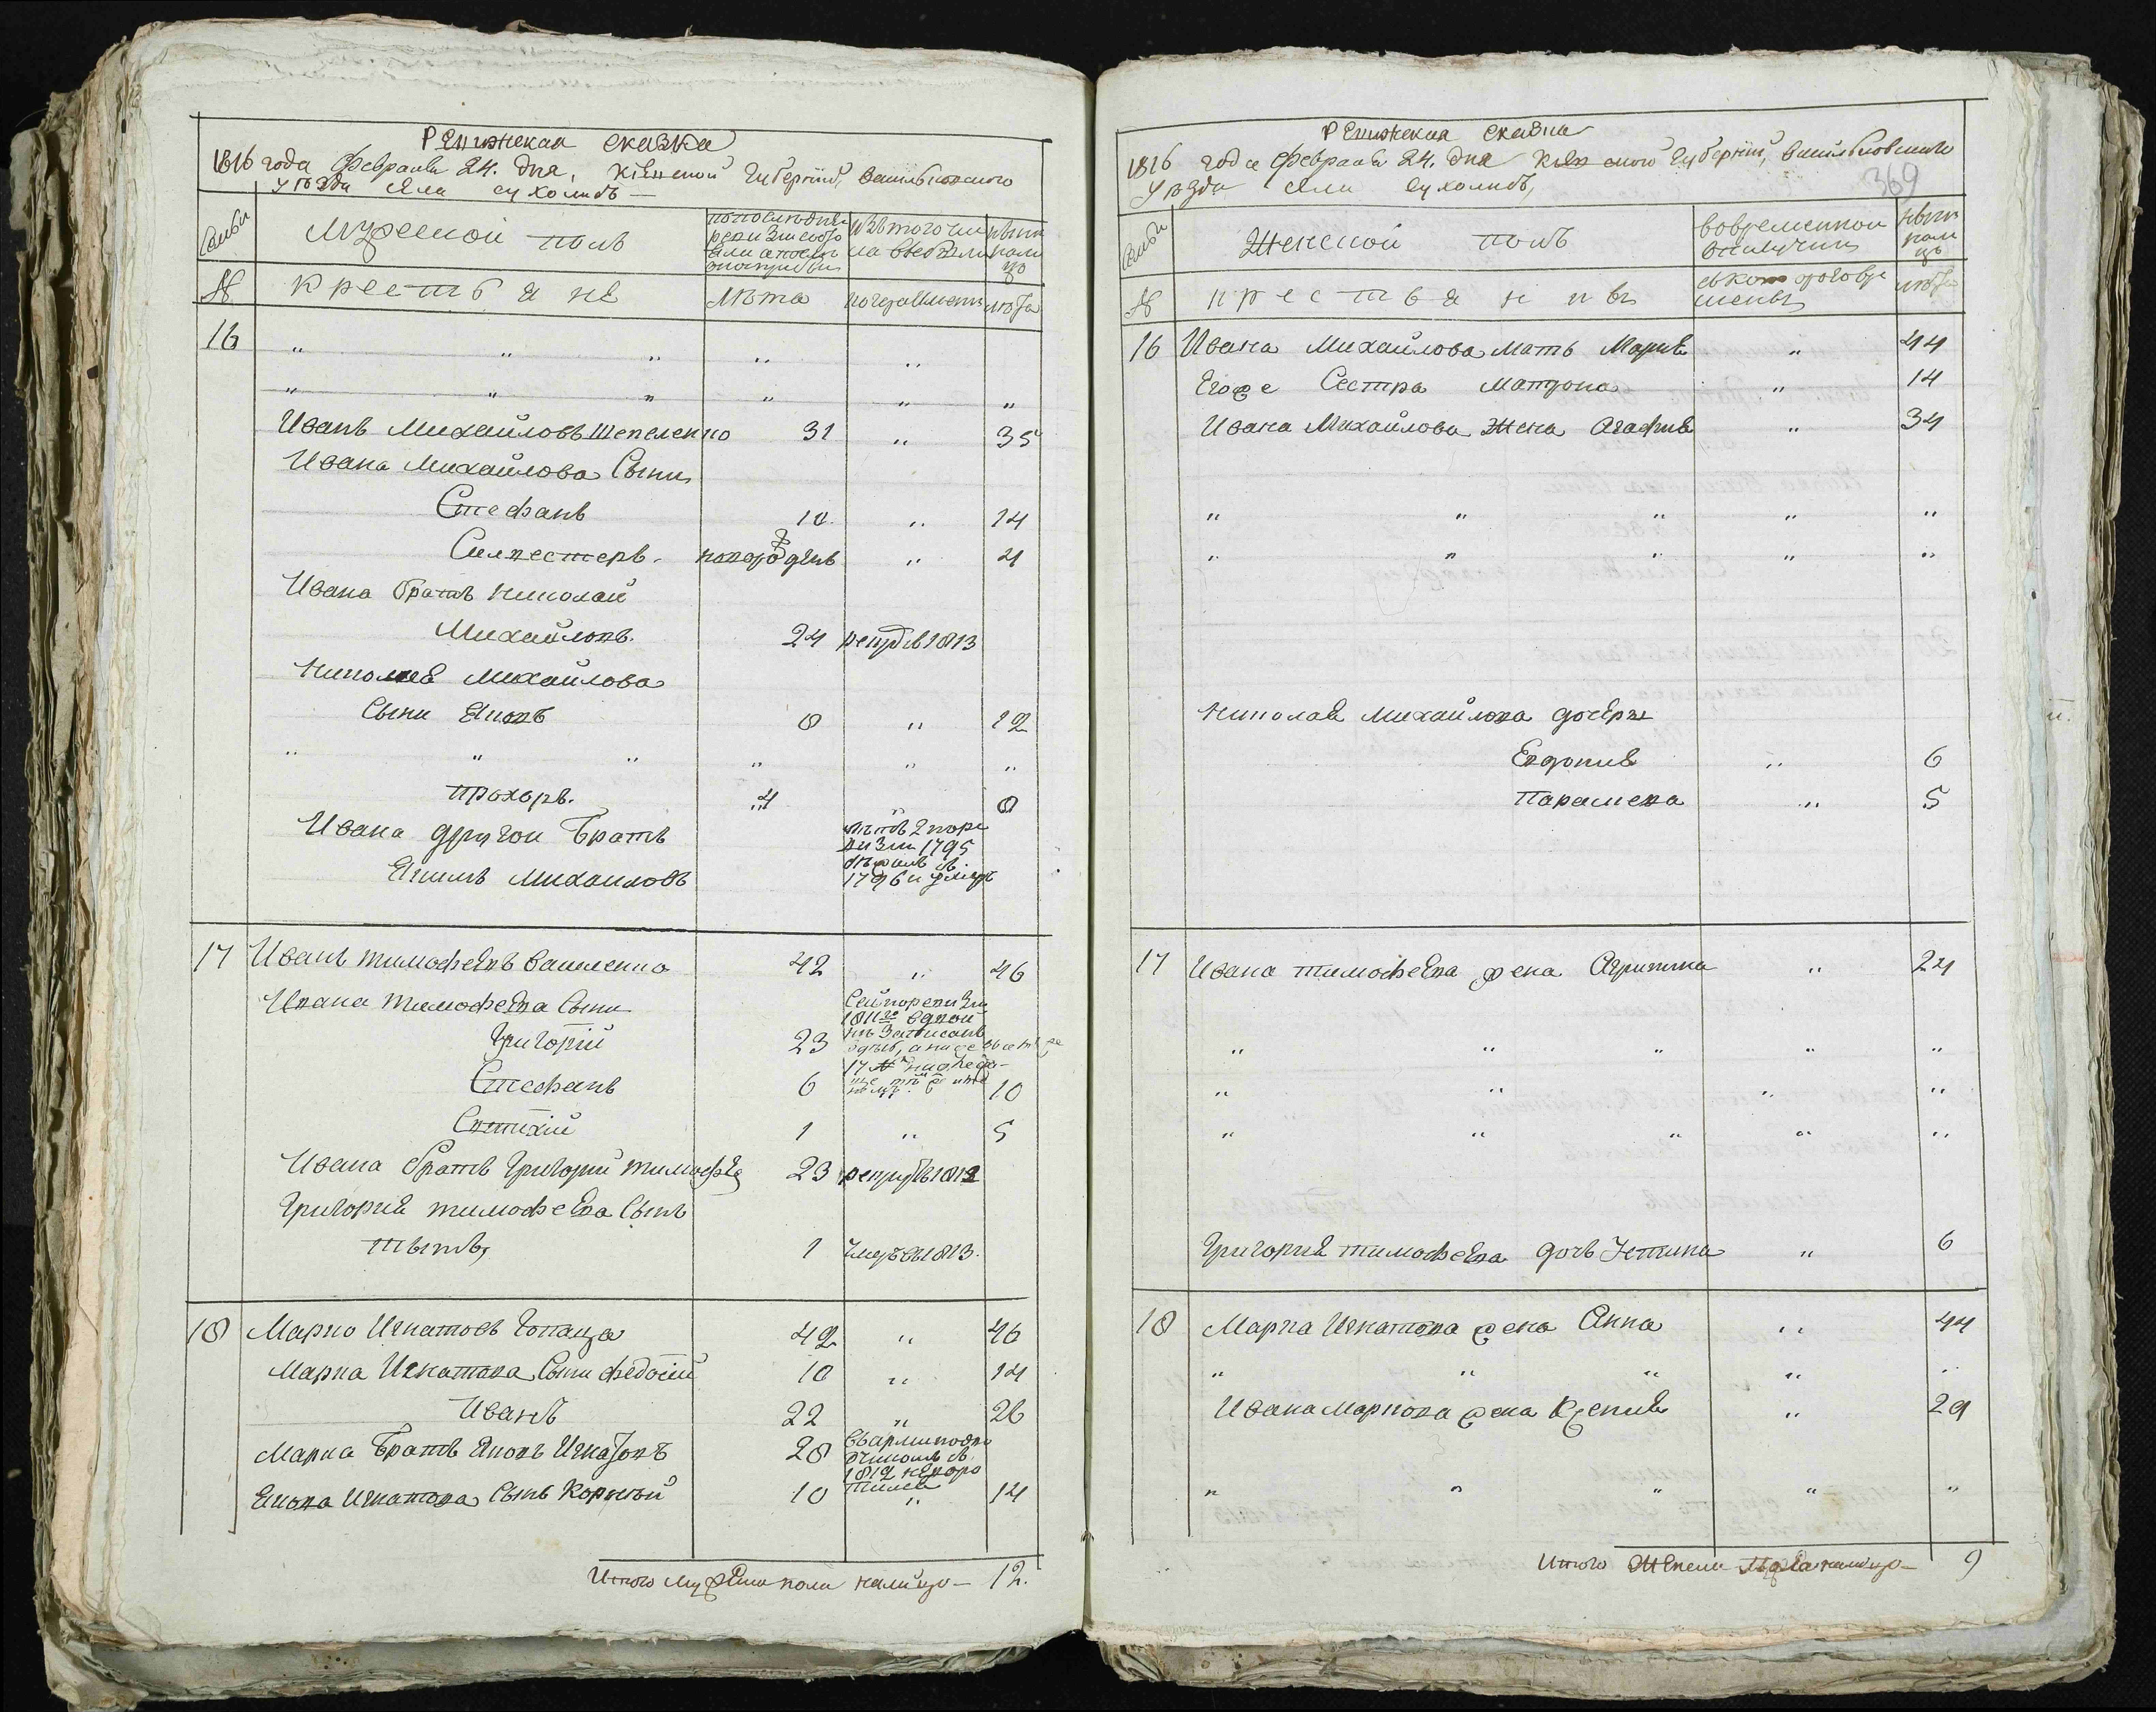 Ревижская сказка
1816 года Февраля 24. дня, Кіевской Губерніи, Васильковского
уезда села сухолисъ
Семьи
Мужеской полъ
По последней ревизіи состояло
изъ того числа выбыло
ныне на лицо
№
крестьяне
Лета
когда именно
лета
16
" " " " "
" " " " " "
Иванъ Михайловъ Шепеленко 31 " 35
Ивана Михайлова Сыни
Стефанъ 10. " 14
Силвестеръ. новорожденъ " 4
Ивана братъ Николай
Михайловъ. 24 рекрутъ в 1813
Николая Михайлова
Сыни Яковъ 8 " 12
" " " " " "
Прохоръ. 4 " 8
Ивана другои Братъ
Якимъ Михаиловъ
летъ 2 по ревизіи 1795
1796 и умеръ
17 Иванъ тимофеевъ Василенко 42 " 46
Ивана тимофеева Сыни
Григорій 23
Сей по ревизіи
1811го
записанъ
17 №
Стефанъ 6 10
Евтихій 1 " 5
Ивана братъ Григорий тимофее 23 рекрутъ 1812
Григория тимофеева Сынъ
Титъ, 1 умеръ въ 1813.
18 Марко Игнатовъ 42 " 46
Марка Игнатова Сыни Федосій 10 " 14
Иванъ 22 " 26
Марка Братъ Яковъ Игнатовъ 28
въ 1812
Якова Игнатова Сынъ Корнъй 10 " 14
Итого мужеска пола налицо — 12.
Ревижская сказка
369
1816 года Февраля 24. дня Кіевской Губерніи, Васильковского
уезда села сухолисъ,
Семьи
Женской полъ
во временной отлучки
ныне на лицо
№
крестьянки
съ которого времены
лета
16 Ивана Михайлова Мать Мария " 44
Егоже Сестра Матрона " 14
Ивана Михайлова Жена Агафия " 34
" " " " "
" " " " "
Николая Михайлова дочеры
Евдокия " 6
Параскева " 5
17 Ивана тимофеева жена Агрипина " 24
" " " " "
" " " "
" " " " "
Григория тимофеева дочь Устина " 6
18 Марка Игнатова жена Анна " 44
" " " " "
Ивана Маркова жена Ксения " 29
" " " " "
Итого Женска пола налицо — 9